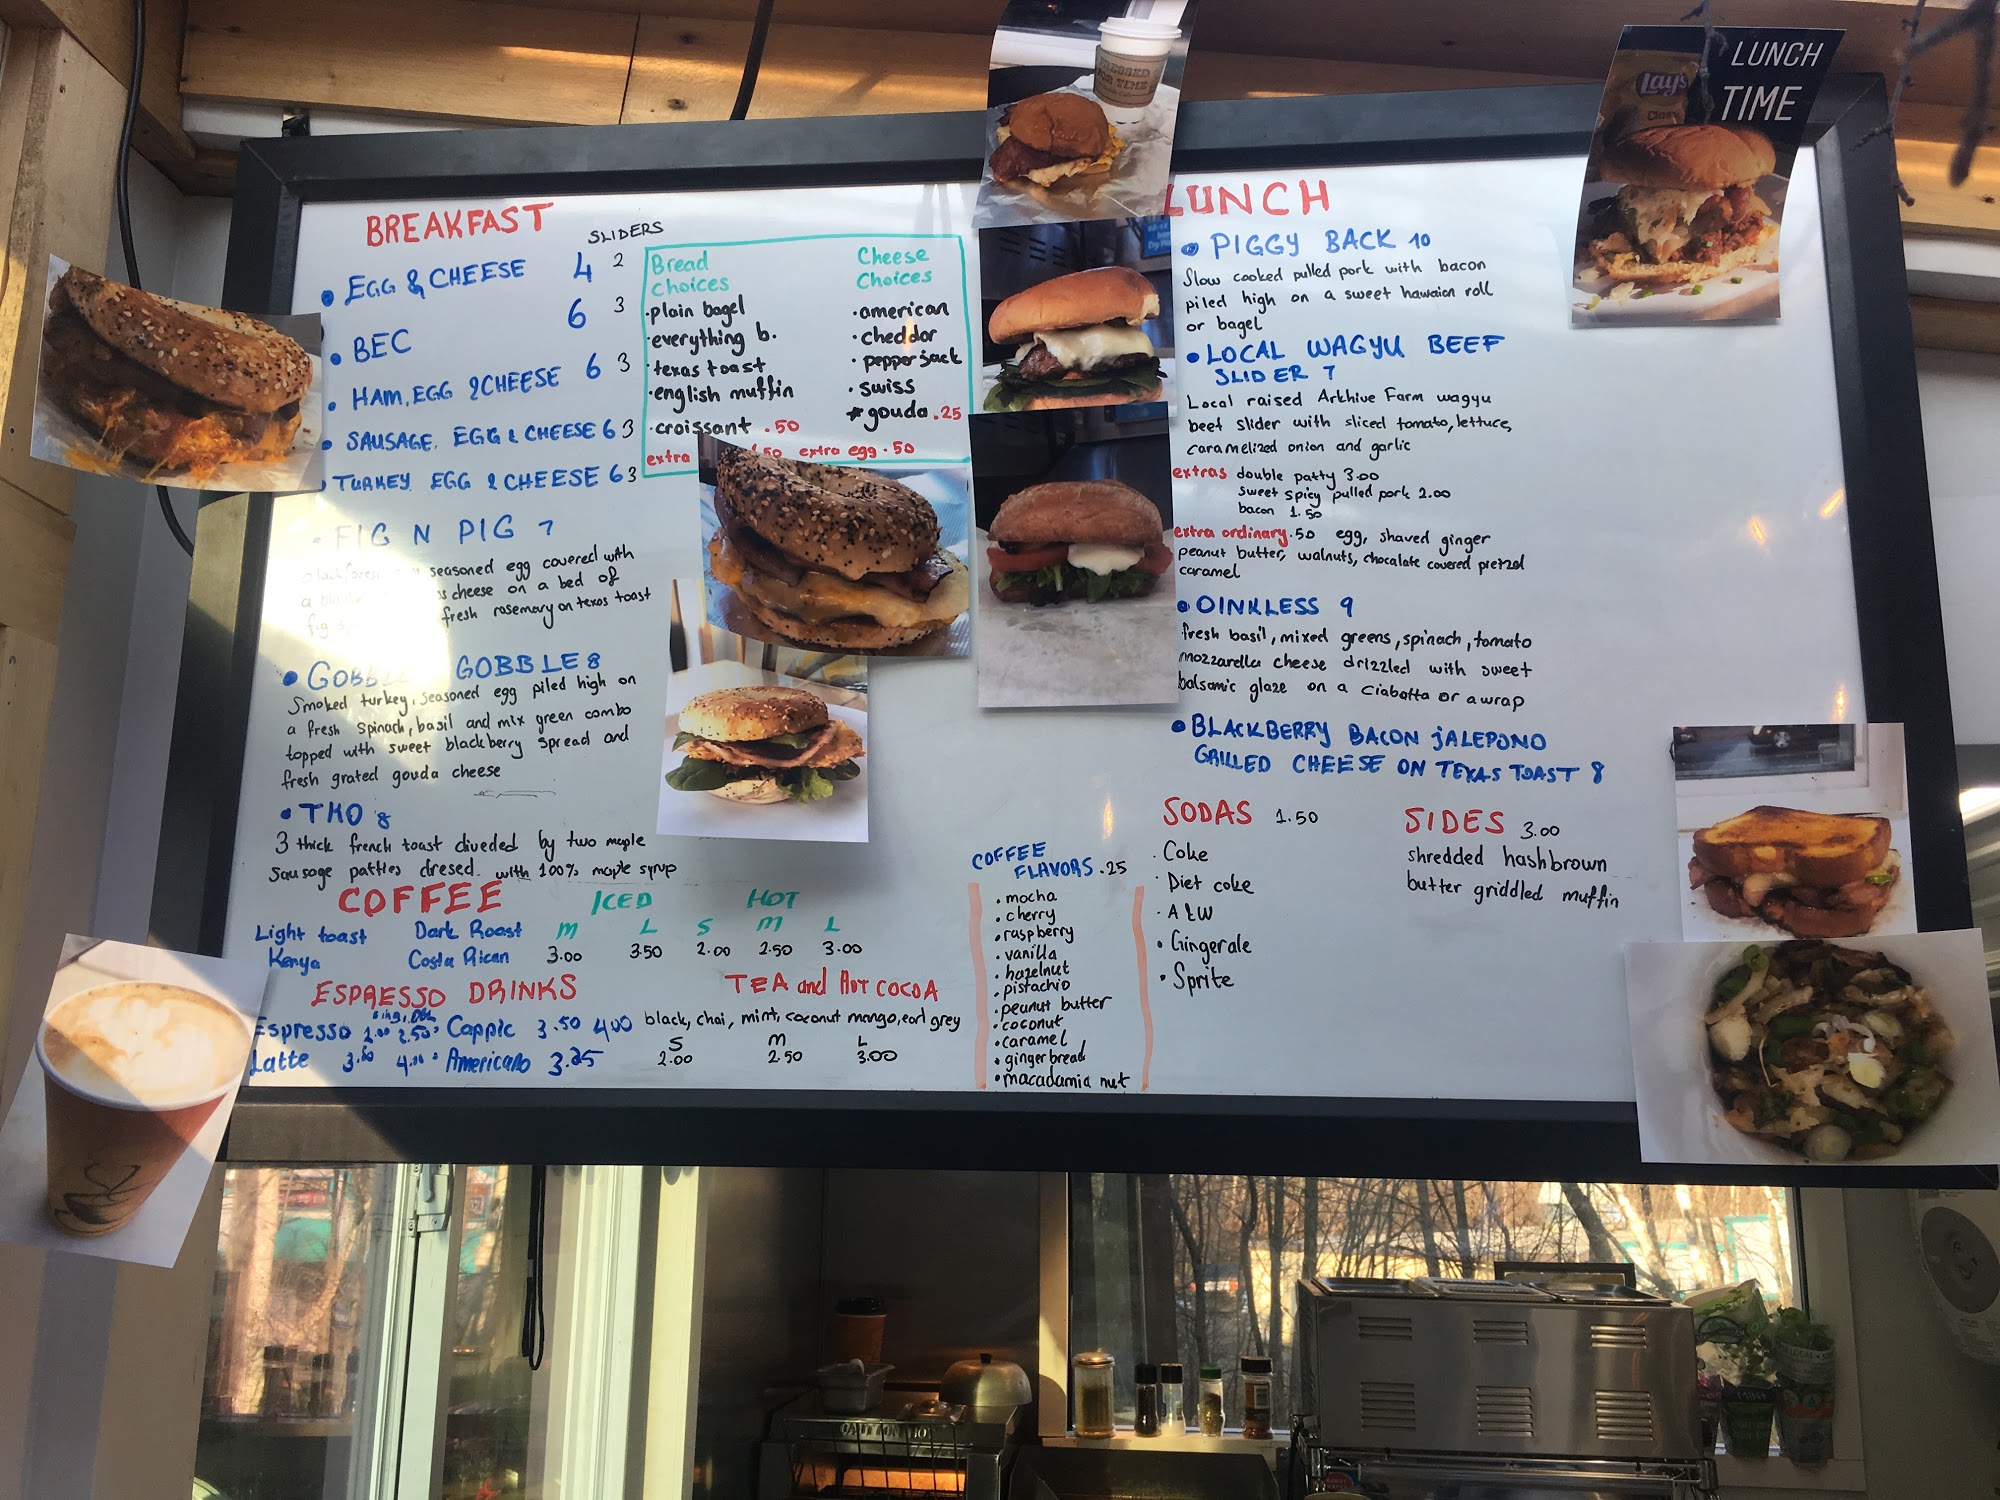 BREAKFAST
SLIDERS
• EGG & CHEESE 4 2
• BEC 6 3
• HAM, EGG & CHEESE 6 3
• SAUSAGE, EGG & CHEESE 6 3
• TURKEY EGG & CHEESE 6 3
Bread Choices
• plain bagel
• everything b.
• texas toast
• english muffin
• croissant .50
extra
extra egg .50
Cheese Choices
• american
• cheddar
• pepper jack
• swiss
* gouda .25
• FIG N PIG 7
seasoned egg covered with
cheese on a bed of
fresh rosemary on texas toast
• GOBBLE GOBBLE 8
Smoked turkey, seasoned egg piled high on
a fresh spinach, basil and mix green combo
topped with sweet blackberry spread and
fresh grated gouda cheese
• TMO 8
3 thick french toast diveded by two maple
sausage patties dresed. with 100% maple syrup
COFFEE
ICED HOT
Light toast Dark Roast M L S M L
Kenya Costa Rican 3.00 3.50 2.00 2.50 3.00
ESPRESSO DRINKS
Espresso 2.00 2.50 • Cappic 3.50 4.00
Latte 3.50 4.00 • Americano 3.25
TEA and HOT COCOA
black, chai, mint, coconut mango, earl grey
S M L
2.00 2.50 3.00
COFFEE
FLAVORS .25
• mocha
• cherry
• raspberry
• vanilla
• hazelnut
• pistachio
• peanut butter
• coconut
• caramel
• gingerbread
• macadamia nut
LUNCH
• PIGGY BACK 10
Slow cooked pulled pork with bacon
piled high on a sweet hawaian roll
or bagel
• LOCAL WAGYU BEEF
SLIDER 7
Local raised Arkhive Farm wagyu
beef slider with sliced tomato, lettuce,
caramelized onion and garlic
extras double patty 3.00
sweet spicy pulled pork 2.00
bacon 1.50
extra ordinary .50 egg, shaved ginger
peanut butter, walnuts, chocalate covered pretzel
caramel
• OINKLESS 9
fresh basil, mixed greens, spinach, tomato
mozzarella cheese drizzled with sweet
balsamic glaze on a ciabatta or a wrap
• BLACKBERRY BACON JALEPONO
GRILLED CHEESE ON TEXAS TOAST 8
SODAS 1.50
• Coke
• Diet coke
• A&W
• Gingerale
• Sprite
SIDES 3.00
shredded hashbrown
butter griddled muffin
PRESSED
FOR TIME
Lay's
LUNCH
TIME